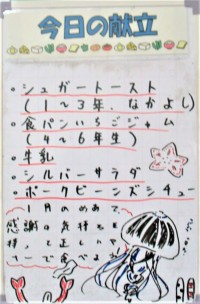 今日の献立
・シュガートースト
(1〜3年、なかよし)
・食パンいちごジャム
(4〜6年生)
・牛乳
・シルバーサラダ
・ポークビーンズシチュー
1月のめあて
感謝の気持ちを
持って正しい